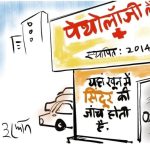 पैथोलॉजी लै
स्थापित: 2014
यहां खून में
सिंदूर की
जांच होती
है.